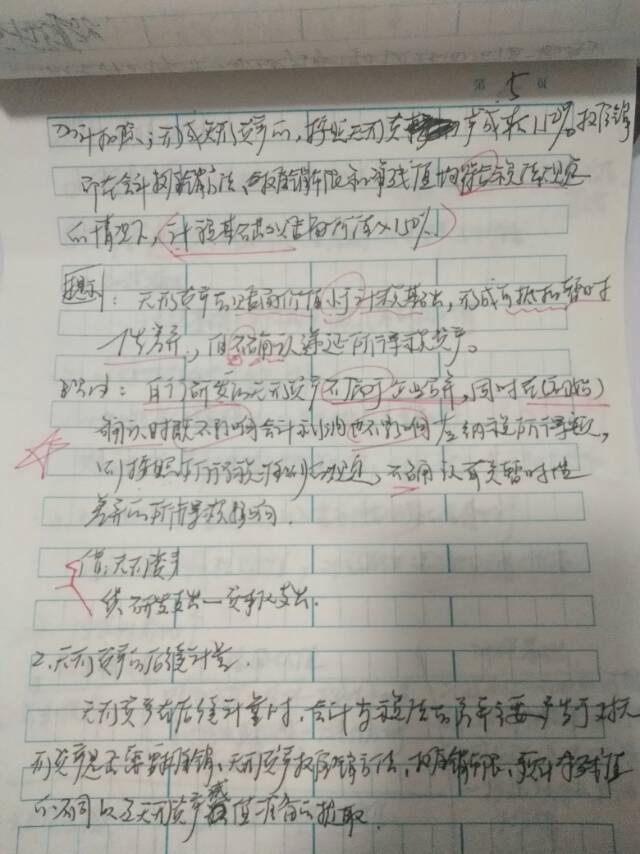 第 5 页
加计扣除；形成无形资产的，按照无形资产成本150%摊销
即在会计摊销方法、摊销年限和净残值均符合税法规定
的情况下，计税基础=账面价值×150%
提示：无形资产的账面价值小于计税基础，形成可抵扣暂时
性差异，但不确认递延所得税资产。
自行研发的无形资产不属于企业合并，同时在(初始)
确认时既不影响会计利润也不影响应纳税所得额，
则按照所得税准则规定，不确认有关暂时性
差异的所得税影响。
借：无形资产
贷：研发支出—资本化支出.
2.无形资产的后续计量.
无形资产在后续计量时，会计与税法的差异主要产生于对无
形资产是否需要摊销、无形资产摊销方法、摊销年限、预计净残值
的不同以及无形资产减值准备的提取.